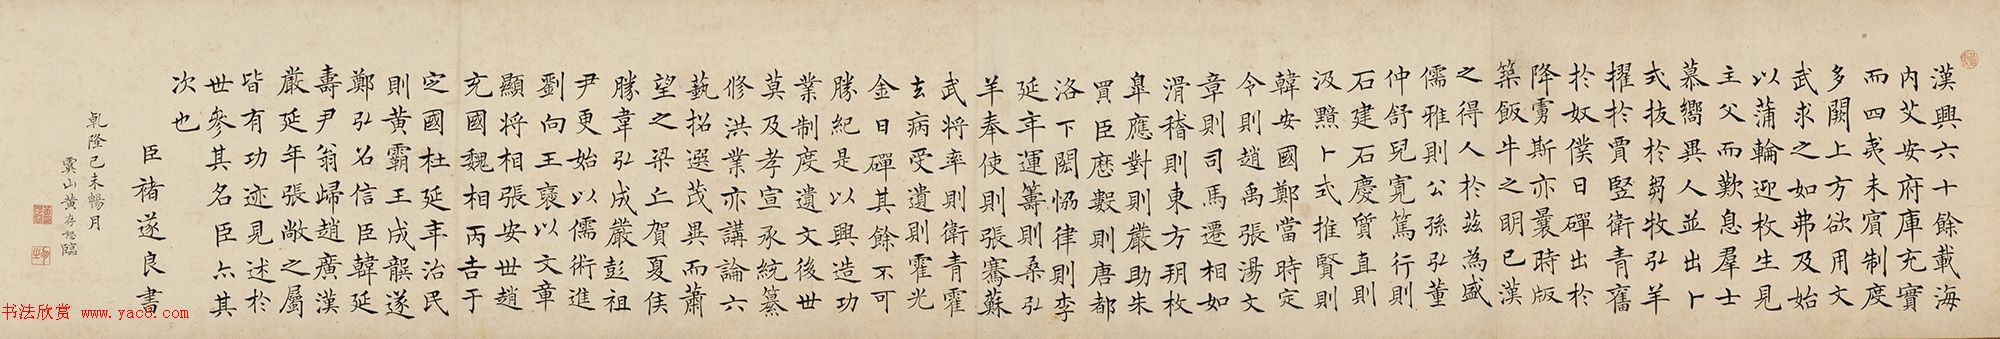 漢興六十餘載海
内艾安府庫充實
而四夷未賓制度
多闕上方欲用文
武求之如弗及始
以蒲輪迎枚生見
主父而歎息羣士
慕嚮異人並出卜
式拔於芻牧弘羊
擢於賈豎衛青奮
於奴僕日磾出於
降虜斯亦曩時版
築飯牛之明已漢
之得人於茲為盛
儒雅則公孫弘董
仲舒兒寬篤行則
石建石慶質直則
汲黯卜式推賢則
韓安國鄭當時定
令則趙禹張湯文
章則司馬遷相如
滑稽則東方朔枚
皐應對則嚴助朱
買臣歷數則唐都
洛下閎恊律則李
延年運籌則桑弘
羊奉使則張騫蘇
武將率則衛青霍
去病受遺則霍光
金日磾其餘不可
勝紀是以興造功
業制度遺文後世
莫及孝宣承統纂
修洪業亦講論六
藝招選茂異而蕭
望之梁丘賀夏侯
勝韋弘成嚴彭祖
尹更始以儒術進
劉向王褒以文章
顯將相張安世趙
充國魏相丙吉于
定國杜延年治民
則黃霸王成龔遂
鄭弘召信臣韓延
壽尹翁歸趙廣漢
嚴延年張敞之屬
皆有功迹見述於
世參其名臣亦其
次也
臣褚遂良書
乾隆己未暢月
虞山黃存臨
书法欣赏 www.yac8.com